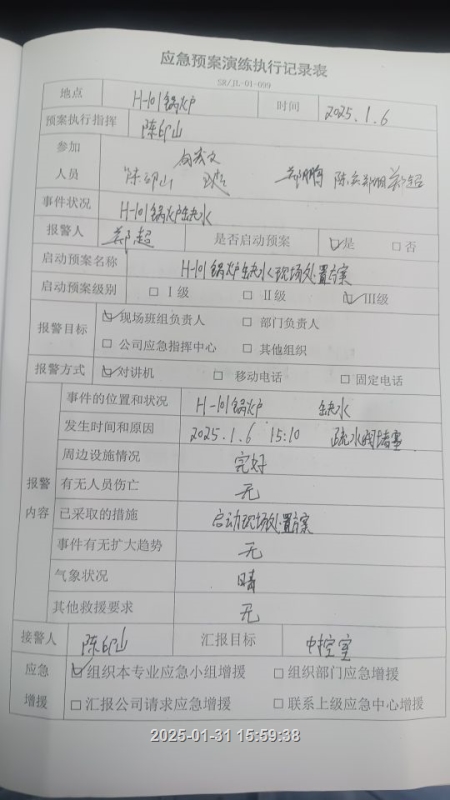 应急预案演练执行记录表
SR/JL-01-099
地点 H-101锅炉 时间 2025.1.6
预案执行指挥 陈印山
参加
人员
陈印山
事件状况 H-101锅炉缺水
报警人 郑超 是否启动预案 ☑是 □否
启动预案名称 H-101锅炉缺水现场处置方案
启动预案级别 □Ⅰ级 □Ⅱ级 ☑Ⅲ级
报警目标 ☑现场班组负责人 □部门负责人
□公司应急指挥中心 □其他组织
报警方式 ☑对讲机 □移动电话 □固定电话
报警内容
事件的位置和状况 H-101锅炉 缺水
发生时间和原因 2025.1.6 15:10 疏水阀堵塞
周边设施情况 完好
有无人员伤亡 无
已采取的措施 启动现场处置方案
事件有无扩大趋势 无
气象状况 晴
其他救援要求 无
接警人 陈印山 汇报目标 中控室
应急 ☑组织本专业应急小组增援 □组织部门应急增援
增援 □汇报公司请求应急增援 □联系上级应急中心增援
2025-01-31 15:59:38